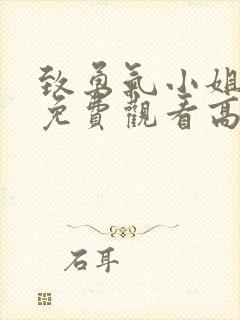 致勇氣小姐
免費觀看高
石耳